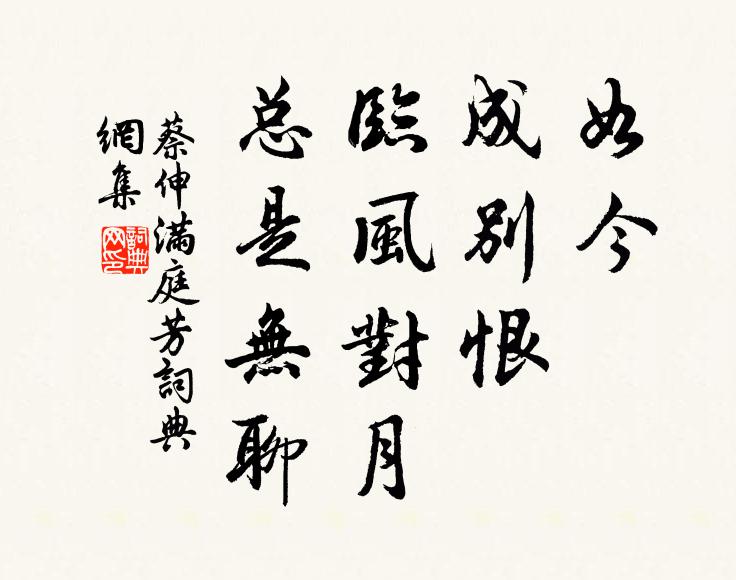 如今
成別恨
臨風對月
总是無聊
蔡伸满庭芳詞典
網集
詞典
网印